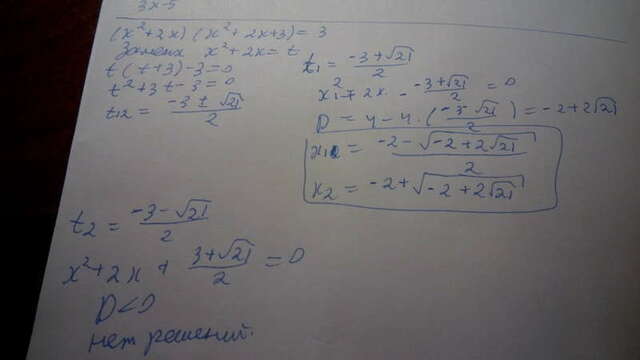 3x-5
(x²+2x)(x²+2x+3)=3
Замена x²+2x=t
t(t+3)-3=0
t²+3t-3=0
t₁₂=(-3±√21)/2
t₁=(-3+√21)/2
x²+2x-(-3+√21)/2=0
D=4-4·(-3-√21)/2)=-2+2√21
x₁=(-2-√(-2+2√21))/2
x₂=-2+√(-2+2√21)
t₂=(-3-√21)/2
x²+2x+(3+√21)/2=0
D<0
нет решений.